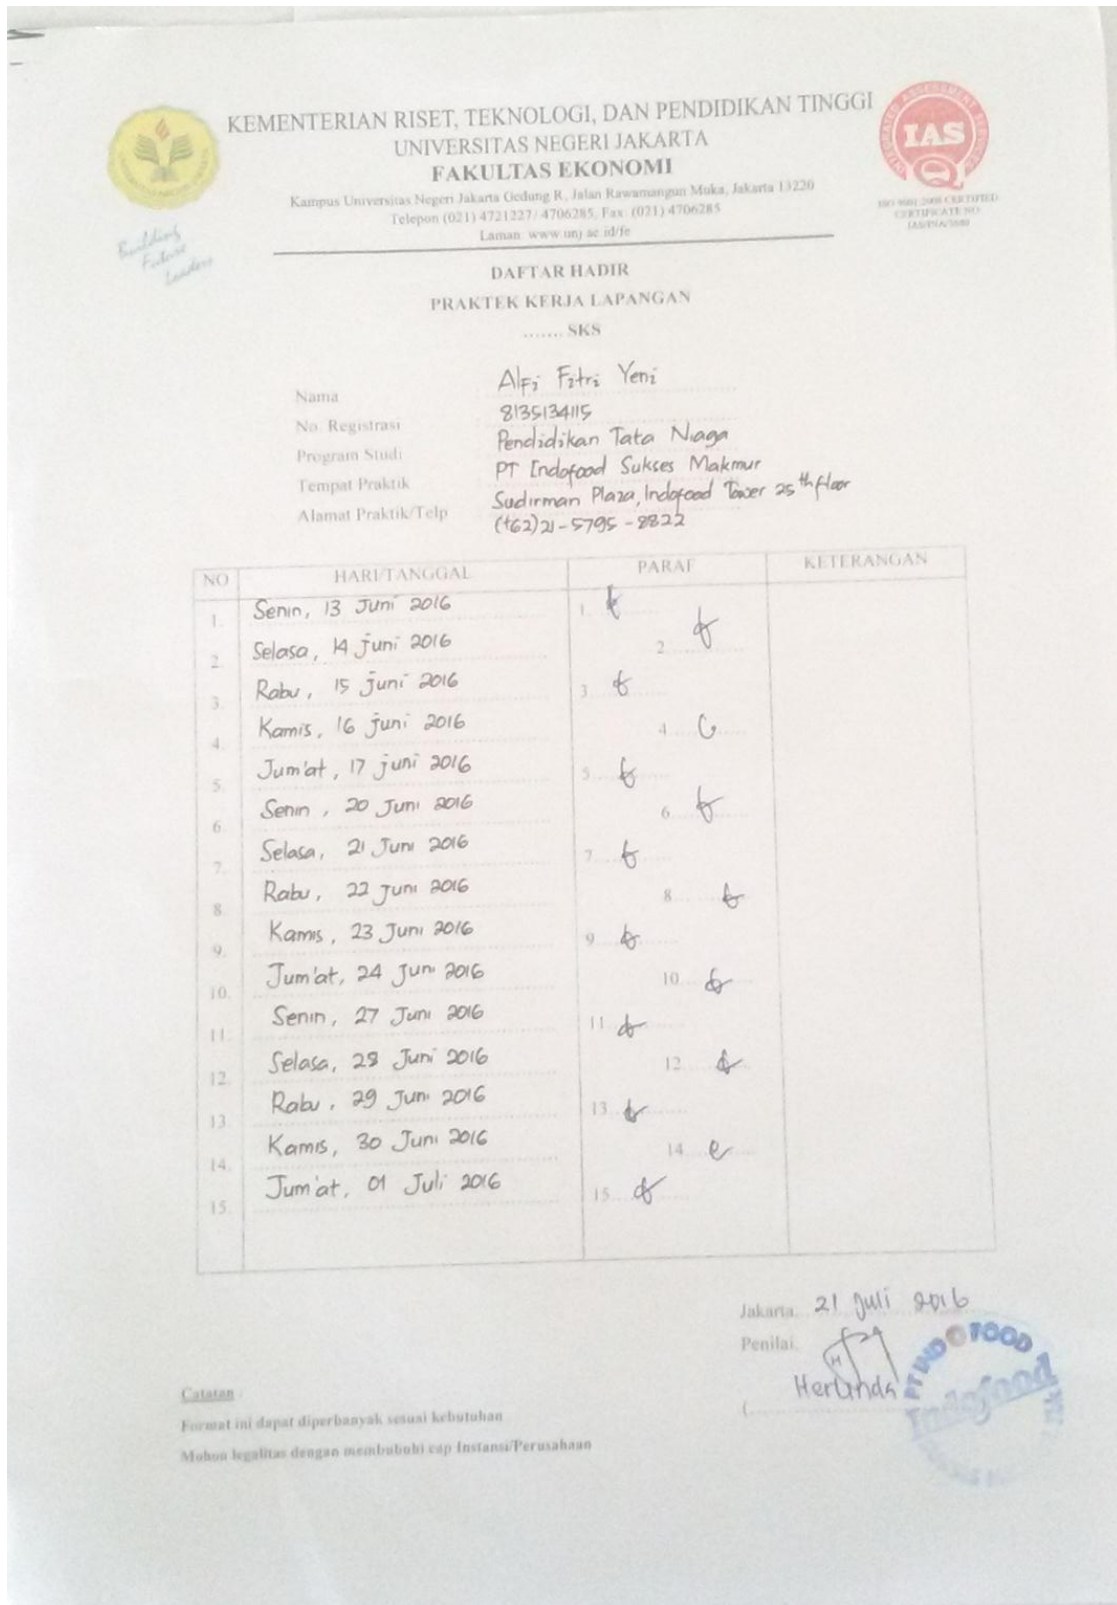 KEMENTERIAN RISET, TEKNOLOGI, DAN PENDIDIKAN TINGGI
UNIVERSITAS NEGERI JAKARTA
FAKULTAS EKONOMI
Kampus Universitas Negeri Jakarta Gedung R, Jalan Rawamangun Muka, Jakarta 13220
Telepon (021) 4721227/ 4706285, Fax: (021) 4706285
Laman: www.unj.ac.id/fe
Building
Future
Leaders
IAS
ISO 9001:2008 CERTIFIED
CERTIFICATE NO
DAFTAR HADIR
PRAKTEK KERJA LAPANGAN
....... SKS
Nama Alfi Fitri Yeni
No. Registrasi 8135134115
Program Studi Pendidikan Tata Niaga
Tempat Praktik PT Indofood Sukses Makmur
Alamat Praktik/Telp Sudirman Plaza, Indofood Tower 25th floor
(+62)21-5795-8822
NO HARI/TANGGAL PARAF KETERANGAN
1. Senin, 13 Juni 2016 1.
2. Selasa, 14 juni 2016 2.
3. Rabu, 15 juni 2016 3.
4. Kamis, 16 juni 2016 4.
5. Jum'at, 17 juni 2016 5.
6. Senin, 20 Juni 2016 6.
7. Selasa, 21 Juni 2016 7.
8. Rabu, 22 Juni 2016 8.
9. Kamis, 23 Juni 2016 9.
10. Jum'at, 24 Juni 2016 10.
11. Senin, 27 Juni 2016 11.
12. Selasa, 28 Juni 2016 12.
13. Rabu, 29 Juni 2016 13.
14. Kamis, 30 Juni 2016 14.
15. Jum'at, 01 Juli 2016 15.
Jakarta, 21 Juli 2016
Penilai,
Herlinda
PT INDOFOOD
Indofood
Catatan :
Format ini dapat diperbanyak sesuai kebutuhan
Mohon legalitas dengan membubuhi cap Instansi/Perusahaan